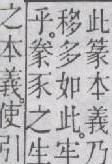 此篆本義乃
移多如此。牢
乎。豢豕之生
之本義。使引